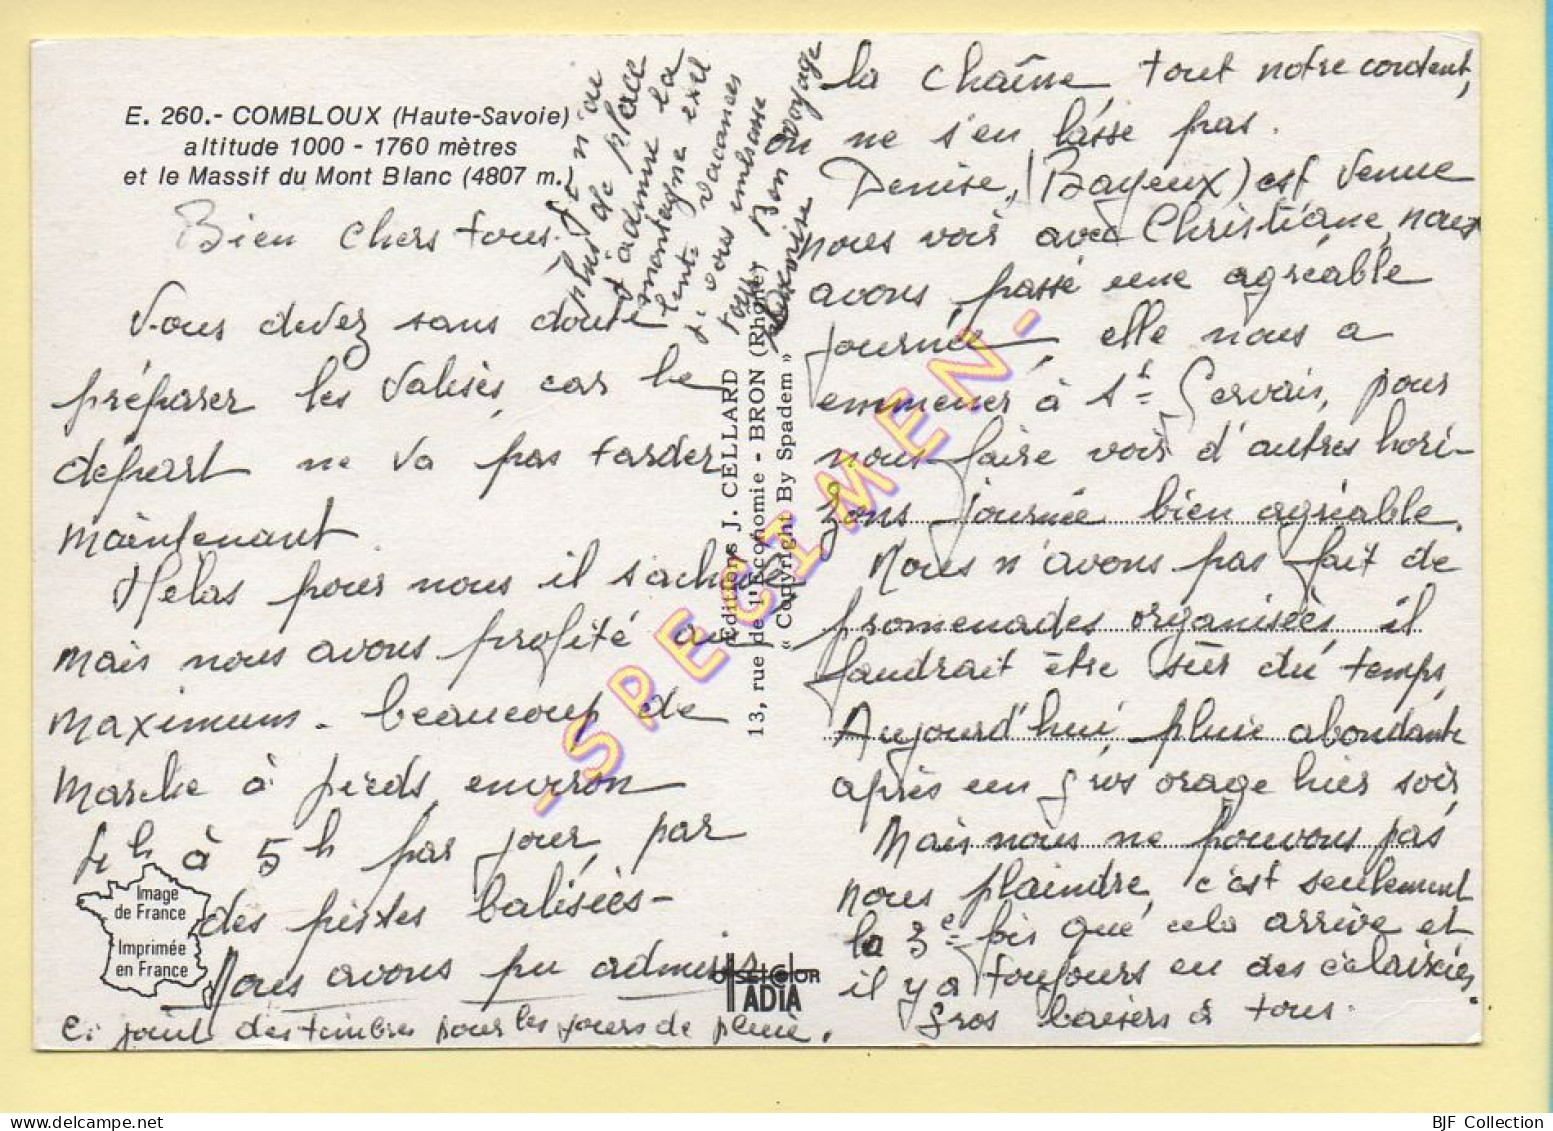 E. 260.- COMBLOUX (Haute-Savoie)
altitude 1000 - 1760 mètres
et le Massif du Mont Blanc (4807 m.)
Bien chers tous.
Vous devez sans doute
préparer les valises, car le
départ ne va pas tarder
maintenant.
Hélas pour nous il s'achève
mais nous avons profité au
maximum. beaucoup de
marche à pieds environ
4h à 5h par jour par
des pistes balisées -
Nous avons pu admirer
Ci joint des timbres pour les jours de pluie.
la chaîne tout notre content,
on ne s'en lasse pas.
Denise, (Bayeux) est venue
nous voir avec Christiane, nous
avons passé une agréable
journée, elle nous a
emmener à St Gervais, pour
nous faire voir d'autres hori-
zons journée bien agréable.
Nous n'avons pas fait de
promenades organisées, il
faudrait être sûr du temps,
Aujourd'hui, pluie abondante
après un gros orage hier soir,
Mais nous ne pouvons pas
nous plaindre, c'est seulement
la 3e fois que cela arrive et
il y a toujours eu des éclaircies.
Gros baisers à tous.
Je n'ai
plus de place
J'admire la
montagne exel
lente vacances
Je vous embrasse
tous Bon voyage
Editions J. CELLARD
13, rue de l'Economie - BRON (Rhône)
« Copyright By Spadem »
- SPECIMEN -
Image
de France
Imprimée
en France
OFFSETCOLOR
ADIA
BJF Collection